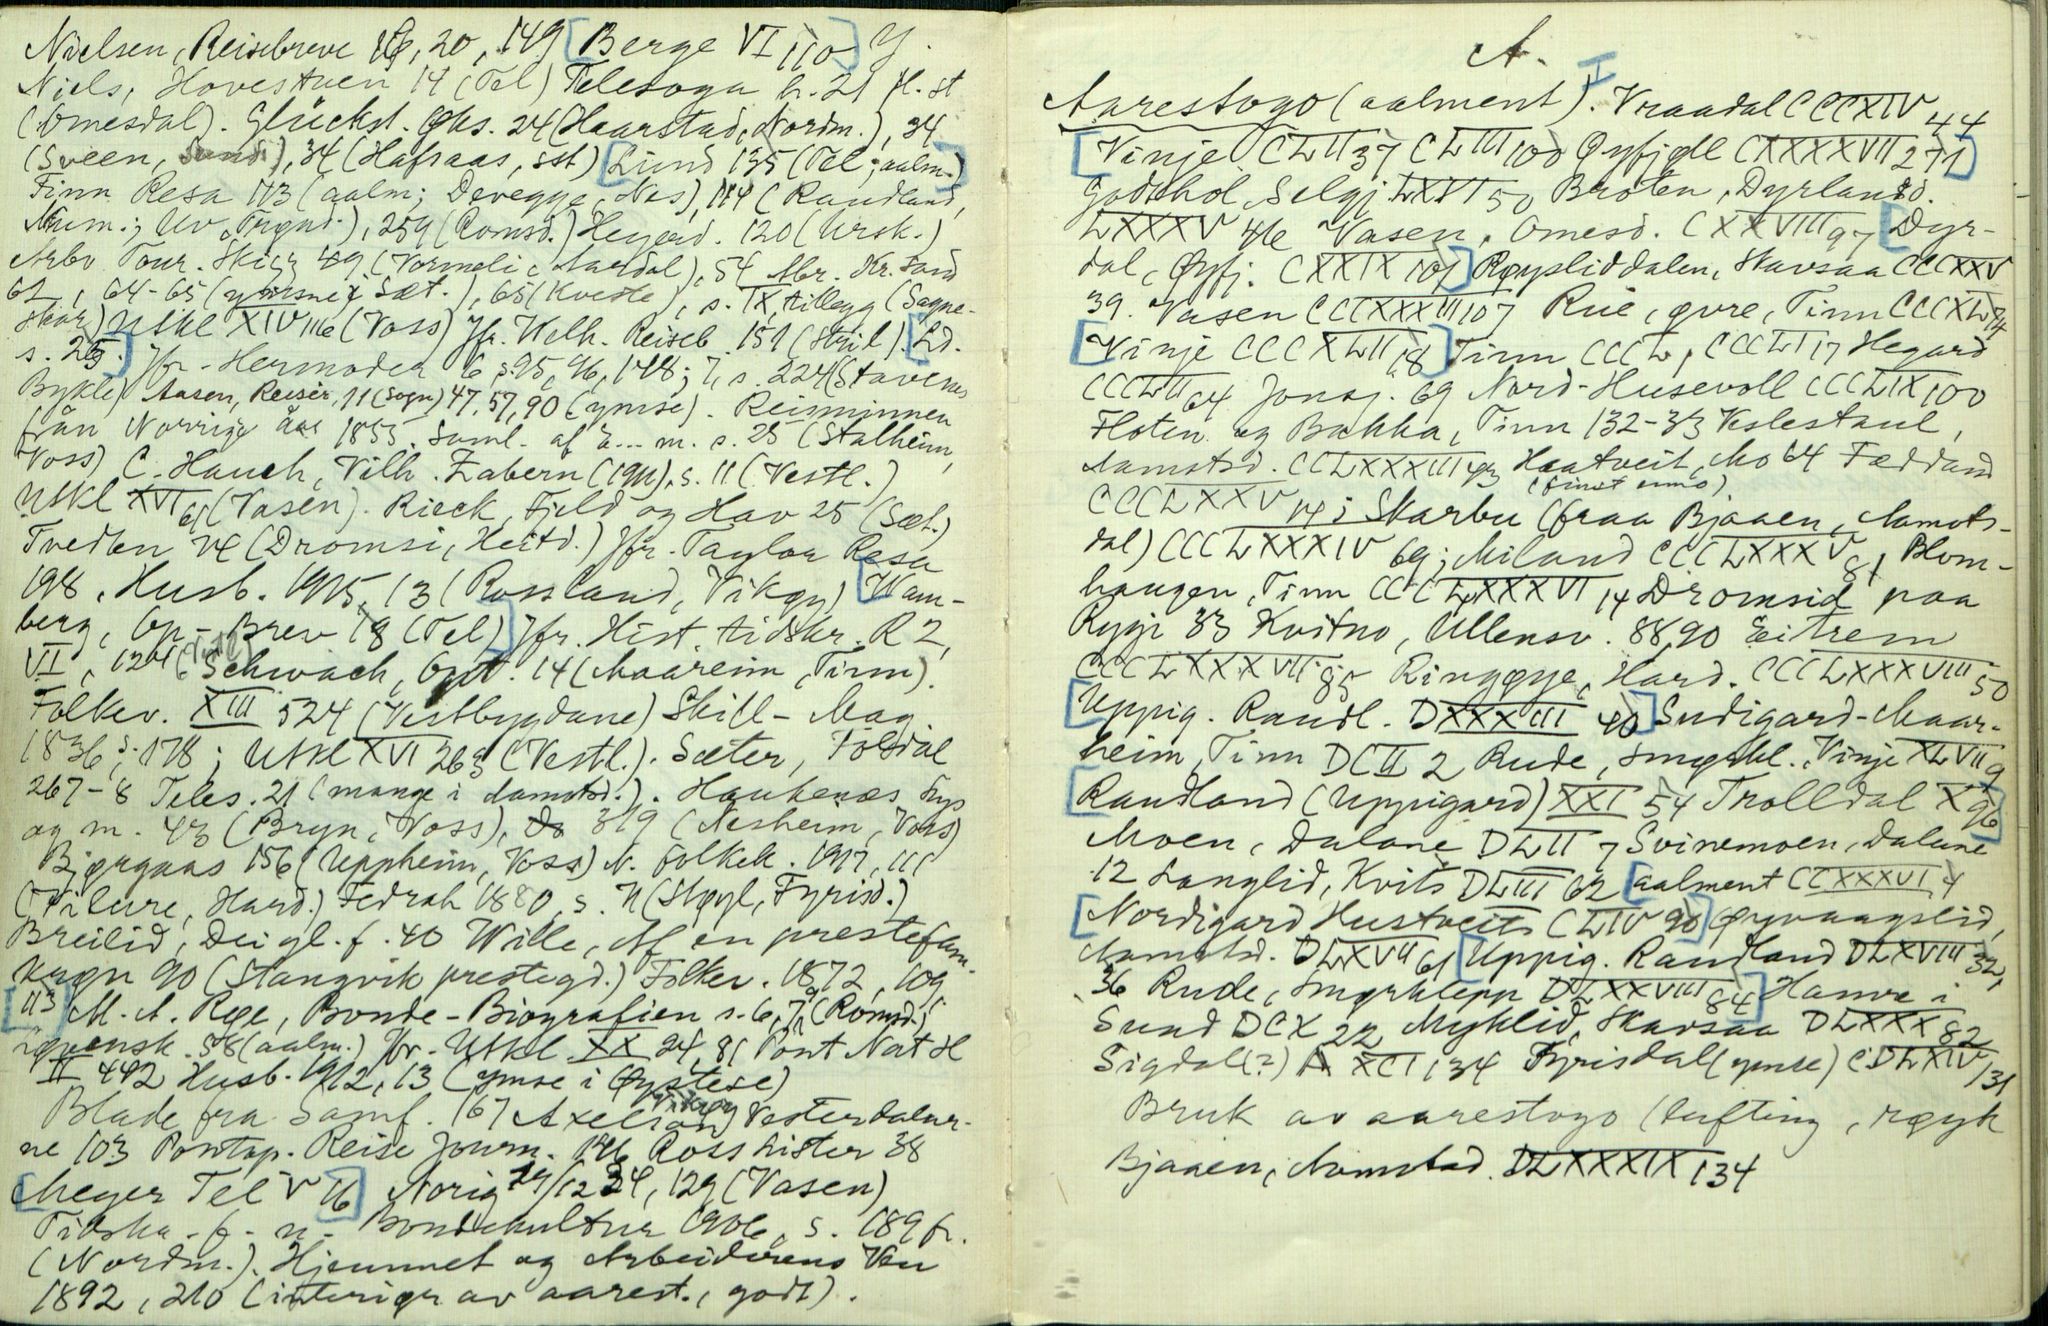 Nielsen, Reisebreve 18, 20, 149 [Berge VI 110] Y.
Niels, Hovestuen 14 (Tel) Telesoga h. 21 H. st
(Omesdal). Glückst. Ghs. 24 (Haarstad, Nordm.), 34
(Sveen, Sund), 34 (Hafsaas, sst) [Lund 135 (Tel; aalm.)]
Finn Resa 173 (aalm; Devegge, Nes), 174 (Raudland,
Num.; Uv, Tregnd.), 259 (Romsd.) Hegard. 120 (Ursk.)
Arbo Tour. Skizz 49 (Vormeli i Aardal), 54 Abr. Kr. Sand
62, 64-65 (ymsni i Sæt.), 65 (Kveste), s. IX, tillegg (Sogne-
skar) Utkl XIV 116 (Voss) Jfr. Welh. Reiseb. 151 (Stril) [Ld.
s. 25.] Jfr. Hermoden 6, s. 95, 96, 148; 7, s. 224 (Stavenes
Bykle) Aasen, Reiser, 11 (Sogn) 47, 57, 90 (ymse). Reiseminnen
från Norrige år 1855. Saml. af E... m. s. 25 (Stalheim,
Voss) C. Hauch, Vilh. Zabern (1911), s. 11 (Vestl.)
Utkl XVI 61 (Vasen). Rieck, Fjeld og Hav 25 (Sæt.)
Tvedten 74 (Dromsi, Heitd.) Jfr. Taylor Resa
198. Husb. 1915, 13 (Rossland, Vikøy) [Wam-
berg, Op-Brev 18 (Tel)] Jfr. Hist. tidskr. R 2,
VI, 124 (Tel) Schwach, Opt. 14 (Maareim, Tinn).
Folkev. XIII 524 (Vestbygdane) Skill-Mag.
1836, s. 178; Utkl XVI 263 (Vestl.). Sæter, Folldal
267-8 Teles. 21 (mange i Aamotsd.). Haukenæs Lys
og m. 43 (Bryn, Voss), Do 319 (Nesheim, Voss)
Bjørgaas 156 (Uppheim, Voss) N. Folkek. 1917, 111
(Pilure, Hard.) Fedrah 1880, s. 71 (Støyl, Fyrisd.)
Breilid, Dei gl. f. 40 Wille, Af en prestefam.
krøn 90 (Stangvik prestegd.) Folkev. 1872, 109
[113] M. A. Røe, Bonde-Biografien s. 6, 7, 9 (Romsd.)
58 (aalm.) Jfr. Utkl XX 24, 81 Pont Nat H
II 442 Husb. 1912, 13 (ymse i Øystese)
Blade fra Samf. 167 Axelson, Vesterdalar-
ne 103 Pontop. Reise Journ. 146 Ross Lister 38
[Meyer Tel V 16] Norig 24/12 24, 129 (Vasen)
Tidskr. f. n. Bondekultur 1906, s. 189 fr.
(Nordm.). Hjemmet og Arbeiderens Ven
1892, 210 (interiør av aarest., godt).
A.
Aarestogo (aalment). I Vraadal CCCXIV 44
[Vinje CLII 37 CLIII 100 Øyfjell CXXXXVII 271]
Godthol, Selgj. LXVI 50 Broten, Dyrland.
LXXXV 46 Vasen, Omesd. CXXVIII 97 [Dyr-
dal, Øyfj. CXXIX 101] Røysliddalen, Skavsaa CCCXXV
39. Vasen CCCXXXIII 107 Rue, øvre, Tinn CCCXL 74
[Vinje CCCXLII 18] Tinn CCCL, CCCLI 17 Hegard
CCCLII 64 Jonsj. 69 Nord-Husevoll CCCLIX 100
Floten og Bakka, Tinn 132-33 Veslestaul,
Aamotsd. CCLXXXIII 93 Haatveit, Mo 64 Fædland
(finst enno)
CCCLXXV 14; Skarbu (fraa Bjaaen, Aamots-
dal) CCCLXXXIV 69; Miland CCCLXXXV 81 Blom-
haugen, Tinn CCCLXXXVI 14 Dromsid paa
Rygi 33 Kvitno, Ullensv. 88, 90 Eitrem
CCCLXXXVII 85 Ringøye, Hard. CCCLXXXVIII 50
[Uppig. Raudl. DXXXIII 40] Sudigard-Maar-
heim, Tinn DCII 2 Rude, Smørkl. Vinje XLVII 9
[Raudland (Uppigard) XXI 54 Trolldal X 96]
Moen, Dalane DLII 7 Svinemoen, Dalane
12 Langlid, Kvits DLIII 62 [aalment CCXXXVI 4
[Nordigard Hustveits CLIV 90] Øyvaagslid,
Aamotsd. DLXVII 61 [Uppig. Raudland DLXVIII 32,
36 Rude, Smørklepp DLXXVIII 84] Hamre i
Sund DCX 22 Myklid, Skavsaa DLXXX 82
Sigdal (?) A XCI 134 Fyrisdal (ymse) CDLXIV 131
Bruk av aarestogo (lufting, røyk
Bjaaen, Aamotsd. DLXXXIX 134